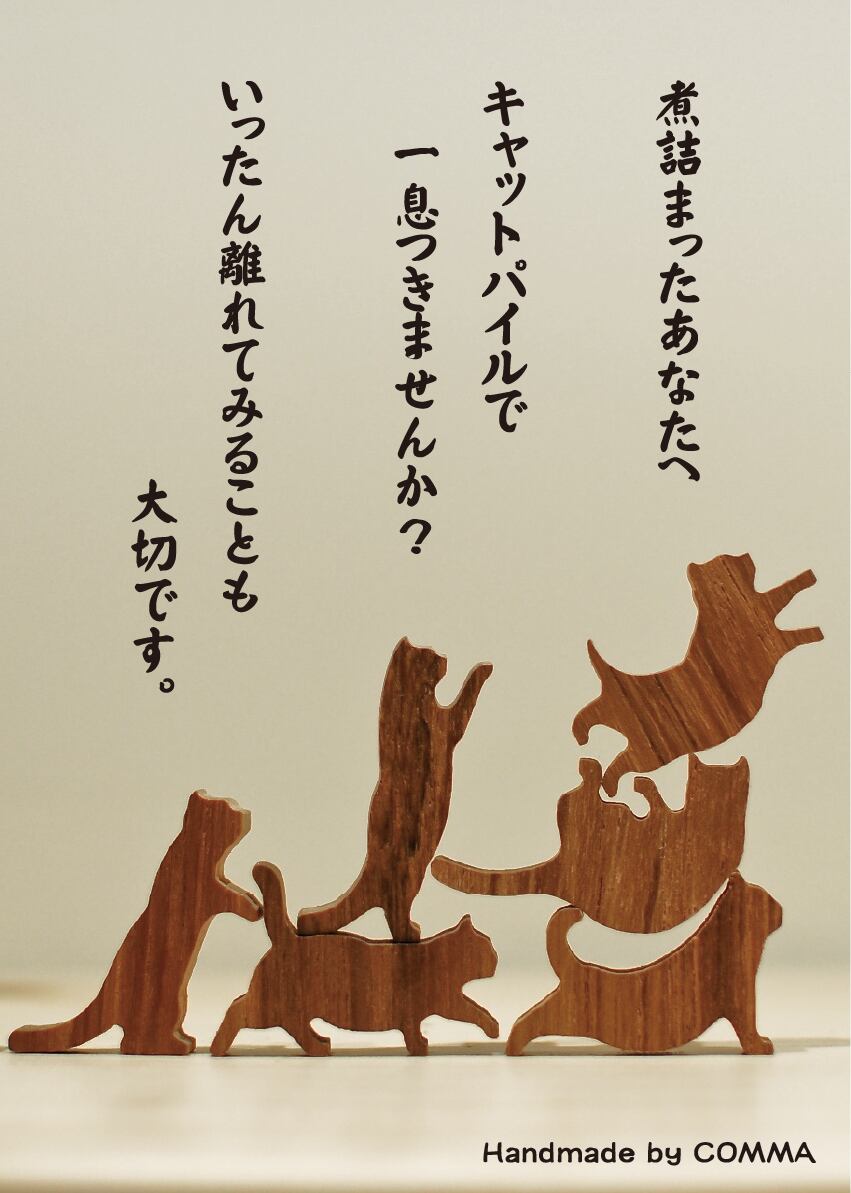 煮詰まったあなたへ
キャットパイルで
一息つきませんか？
いったん離れてみることも
大切です。
Handmade by COMMA